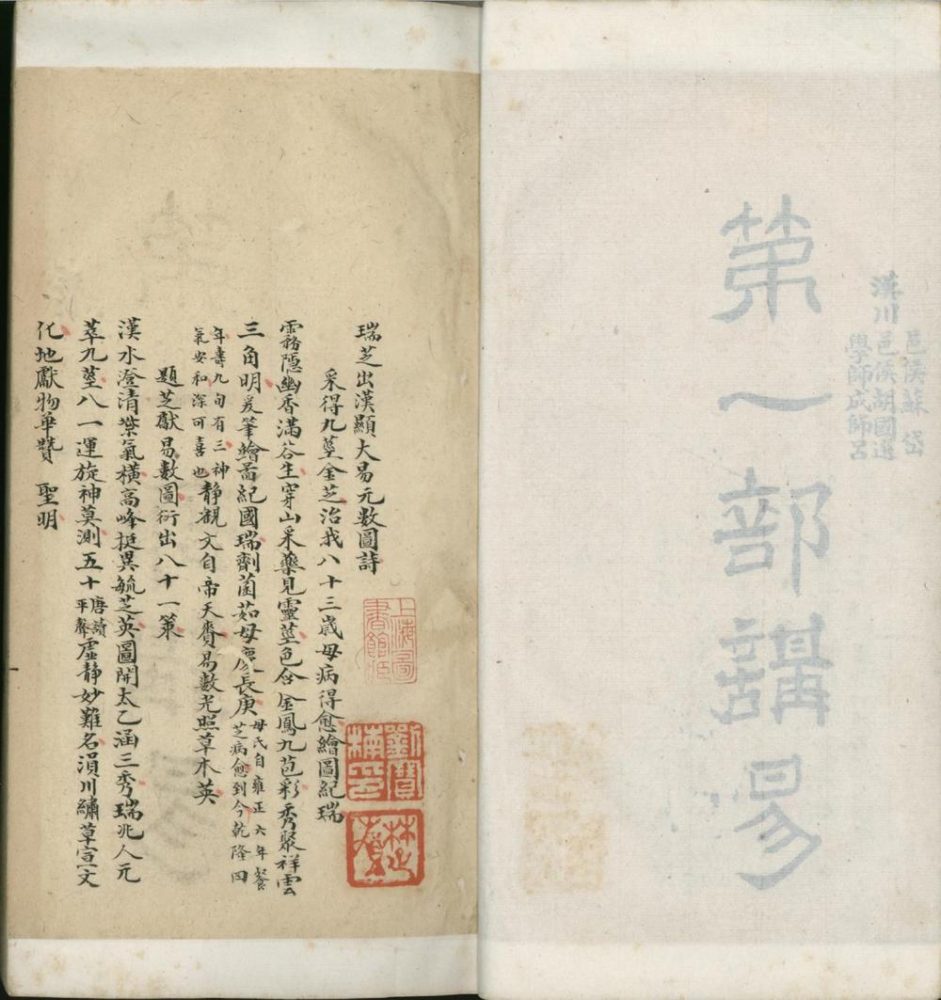 第一部講易
漢川
邑侯蘇岱
邑侯胡國選
學師成師呂
瑞芝出漢顯大易元數圖詩
采得九莖金芝治我八十三歲母病得愈繪圖紀瑞
霧隱幽香滿谷生穿山采藥見靈莖色含金鳳九苞彩秀聚祥雲
三角明爰筆繪啚紀國瑞劑菌茹母慶長庚
母氏自雍正六年餐
芝病愈到今乾隆四
年壽九旬有三神
氣安和深可喜也
靜觀文自帝天賚易數光照草木英
題芝獻易數圖衍出八十一策
漢水澄清紫氣橫高峰挺異毓芝英圖開太乙涵三秀瑞兆人元
萃九莖八一運旋神莫測五十
唐讀
平聲
虛靜妙難名溳川繡草宣文
化地獻物華贊 聖明
上海圖
書館藏